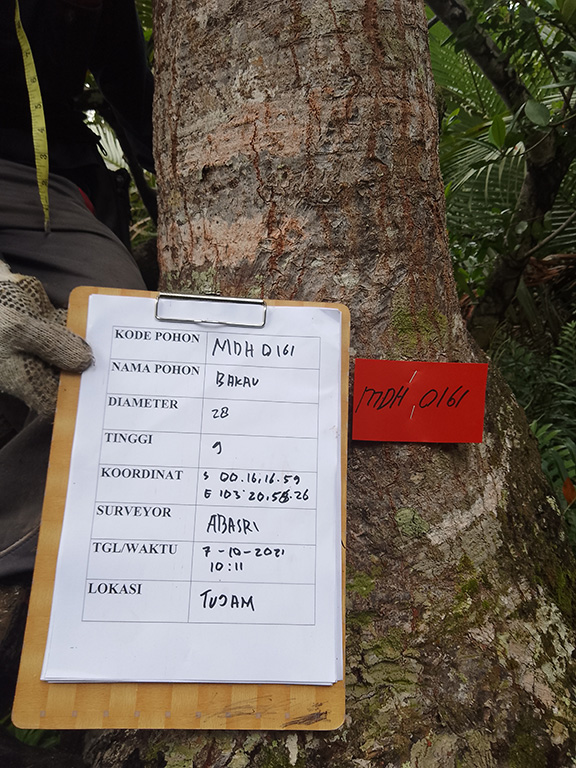 KODE POHON MDH 0161
NAMA POHON BAKAU
DIAMETER 28
TINGGI 9
KOORDINAT S 00.16.16.59
E 103°20.58.26
SURVEYOR ABASRI
TGL/WAKTU 7-10-2021
10:11
LOKASI TUJAM
MDH 0161